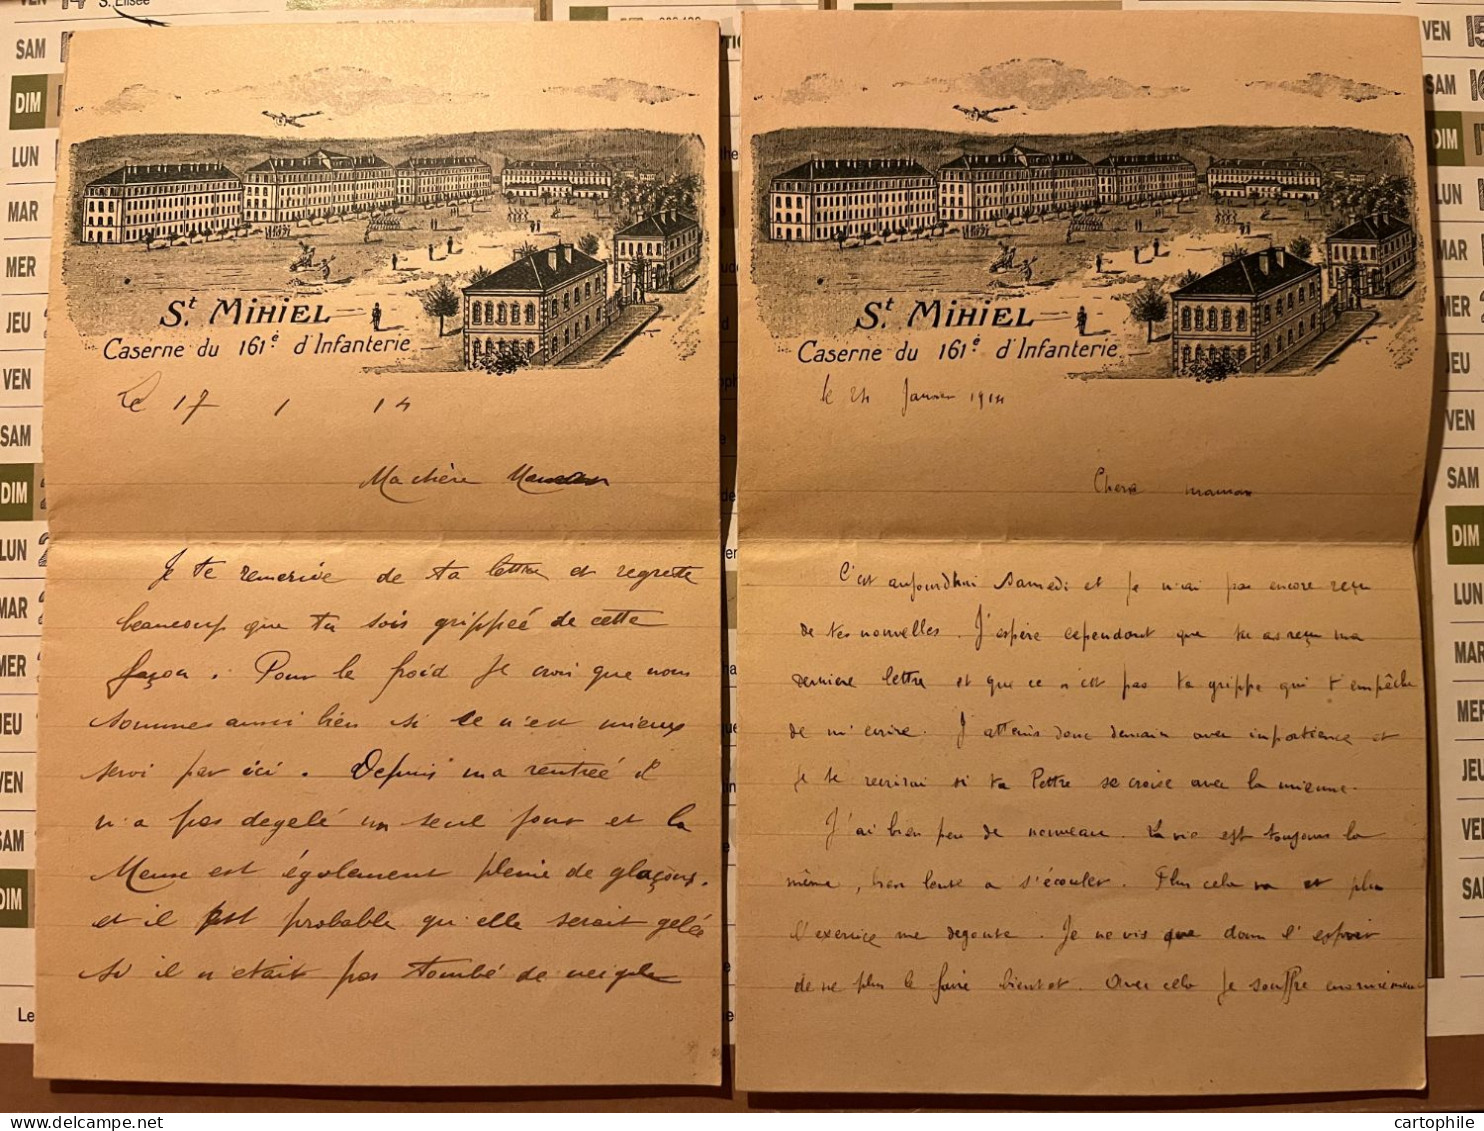 St MIHIEL
Caserne du 161e d'Infanterie
Le 17 1 14
Ma chère Maman
Je te remercie de ta lettre et regrette
beaucoup que tu sois grippeé de cette
façon. Pour le froid je crois que nous
sommes aussi bien si ce n'est mieux
servi par ici. Depuis ma rentreé il
n'a pas degelé un seul jour et la
Meuse est également pleine de glaçons.
et il est probable qu'elle serait gelée
si il n'etait pas tombé de neige
St MIHIEL
Caserne du 161e d'Infanterie
le 24 Janvier 1914
Chere maman
C'est aujourdhui Samedi et je n'ai pas encore reçu
de tes nouvelles. J'espère cependant que tu as reçu ma
derniere lettre et que ce n'est pas ta grippe qui t'empêche
de m'ecrire. J'attens donc demain avec impatience et
je te recrirai si ta lettre se croise avec la mienne.
J'ai bien peu de nouveau. La vie est toujours la
même, bien lente a s'écouler. Plus cela va et plus
l'exercice me degoute. Je ne vis que dans l'espoir
de ne plus le faire bientot. Avec cela je souffre enormement
VEN 14 S. Elisée
SAM
DIM
LUN
MAR
MER
JEU
VEN
SAM
DIM
LUN
MAR
MER
JEU
VEN
SAM
DIM
Le
VEN 15
SAM 16
DIM
LUN
MAR
MER
JEU
VEN
SAM
DIM
LUN
MAR
MER
JEU
VEN
SAM
cartophile.com